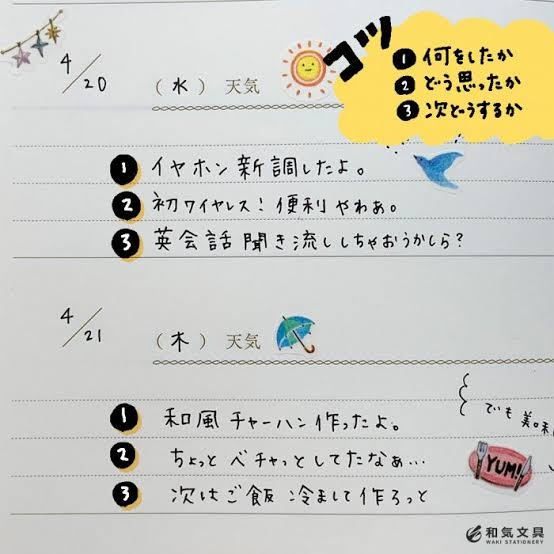 コツ
❶ 何をしたか
❷ どう思ったか
❸ 次どうするか
4/20 (水) 天気
❶ イヤホン新調したよ。
❷ 初ワイヤレス! 便利やわぁ。
❸ 英会話聞き流ししちゃおうかしら?
4/21 (木) 天気
❶ 和風チャーハン作ったよ。
でも美味
❷ ちょっとベチャっとしてたなぁ…
YUM!
❸ 次はご飯冷まして作ろっと
和気文具
WAKI STATIONERY